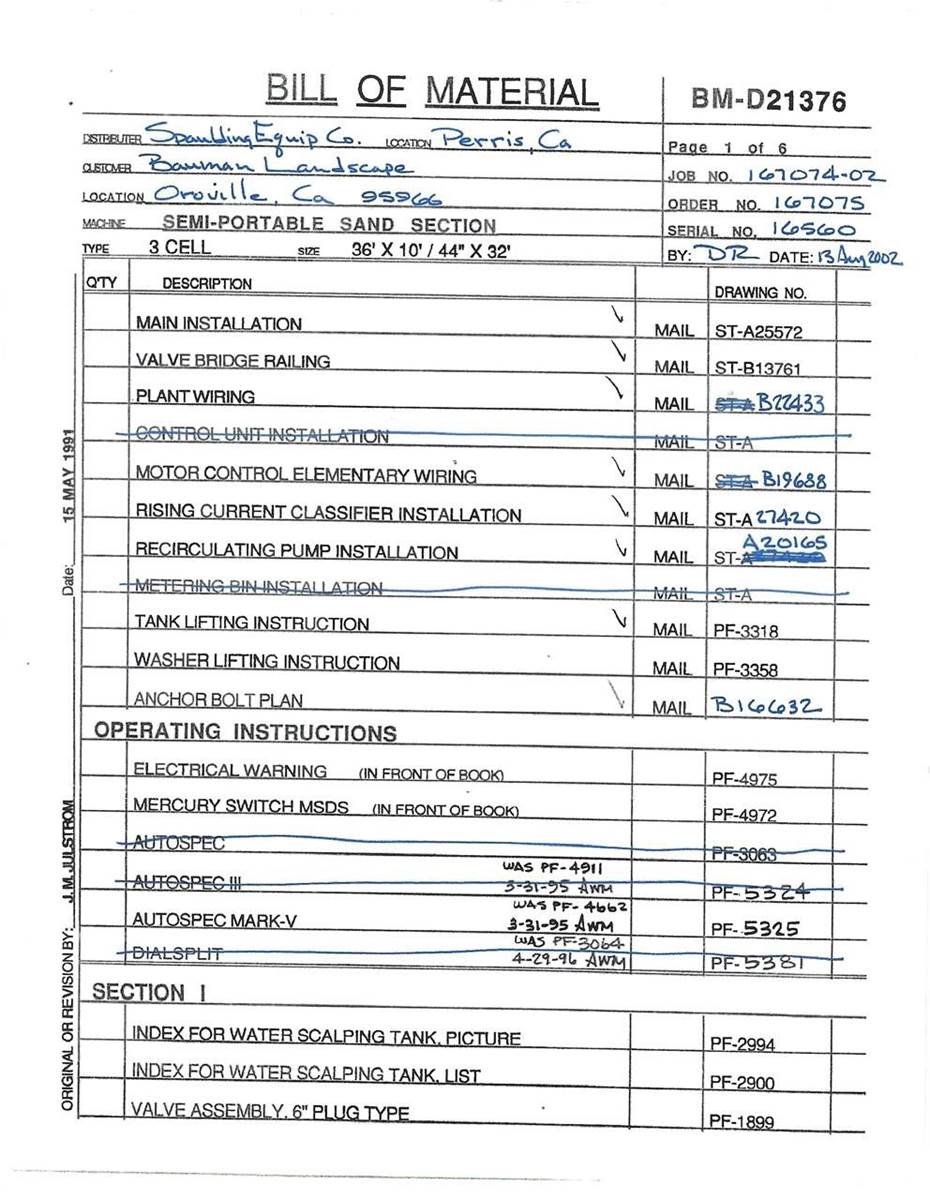 BILL OF MATERIAL
BM-D21376
DISTRIBUTER Spaulding Equip Co. LOCATION Perris, Ca
Page 1 of 6
CUSTOMER Bauman Landscape
JOB NO. 167074-02
LOCATION Oroville, Ca 95966
ORDER NO. 167075
MACHINE SEMI-PORTABLE SAND SECTION
SERIAL NO. 16560
TYPE 3 CELL SIZE 36' X 10' / 44" X 32'
BY: DR DATE: 13 Aug 2002
Q'TY DESCRIPTION DRAWING NO.
MAIN INSTALLATION MAIL ST-A25572
VALVE BRIDGE RAILING MAIL ST-B13761
PLANT WIRING MAIL ST-A B22433
CONTROL UNIT INSTALLATION MAIL ST-A
MOTOR CONTROL ELEMENTARY WIRING MAIL ST-A B19688
RISING CURRENT CLASSIFIER INSTALLATION MAIL ST-A 27420
A20165
RECIRCULATING PUMP INSTALLATION MAIL ST-A
METERING BIN INSTALLATION MAIL ST-A
TANK LIFTING INSTRUCTION MAIL PF-3318
WASHER LIFTING INSTRUCTION MAIL PF-3358
ANCHOR BOLT PLAN MAIL B16632
OPERATING INSTRUCTIONS
ELECTRICAL WARNING (IN FRONT OF BOOK) PF-4975
MERCURY SWITCH MSDS (IN FRONT OF BOOK) PF-4972
AUTOSPEC PF-3063
WAS PF-4911
AUTOSPEC III 3-31-95 AWM PF-5324
WAS PF-4662
AUTOSPEC MARK-V 3-31-95 AWM PF-5325
WAS PF-3064
DIALSPLIT 4-29-96 AWM PF-5381
SECTION I
INDEX FOR WATER SCALPING TANK, PICTURE PF-2994
INDEX FOR WATER SCALPING TANK, LIST PF-2900
VALVE ASSEMBLY, 6" PLUG TYPE PF-1899
Date: 15 MAY 1991
ORIGINAL OR REVISION BY: J.M.JULSTROM